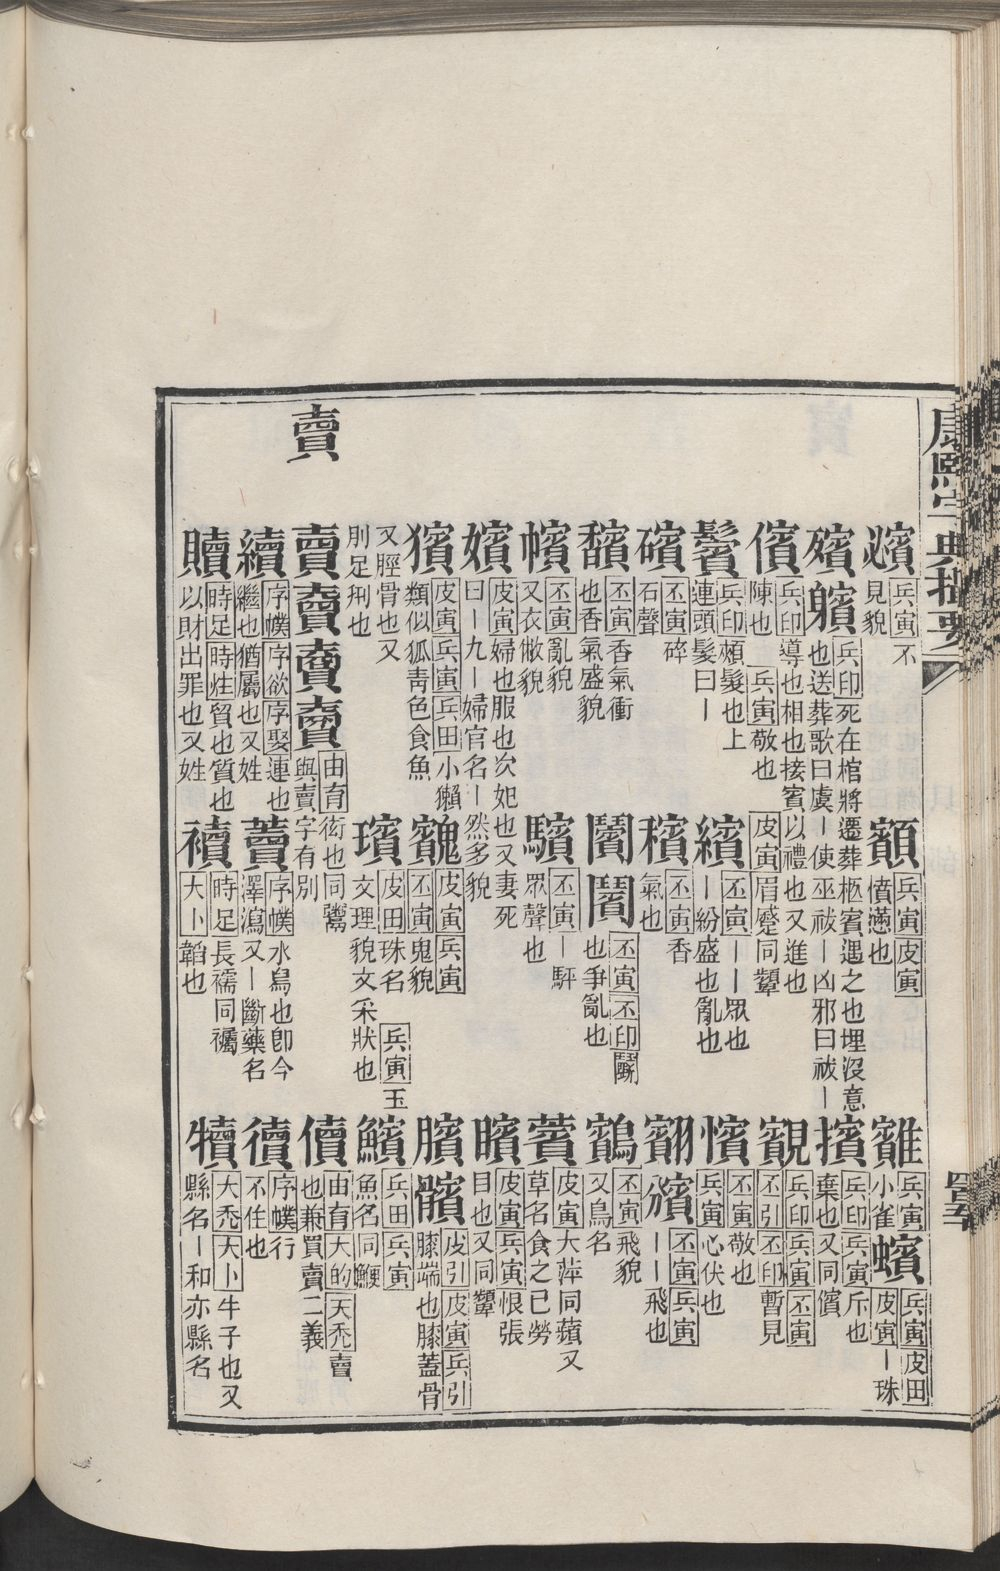 康熙字典撮要
四百五
覕 兵寅不見貌 顮 兵寅皮寅憤懣也 雤 兵寅小雀 蠙 兵寅皮田皮寅丨珠
殯 兵印死在棺將遷葬柩賓遇之也埋沒意也送葬歌曰虞丨使巫祓丨凶邪曰祓丨 擯 兵印兵寅斥也棄也又同儐
儐 兵印導也相也接賓以禮也又進也陳也 兵寅敬也 皮寅眉蹙同顰 覿 兵印兵寅丕寅丕引丕印暫見
鬢 兵印頰髮也上連頭髮曰丨 繽 丕寅丨丨眾也丨紛盛也亂也 懭 丕寅敬也兵寅心伏也
礗 丕寅碎石聲 穦 丕寅香氣也 丕寅飛貌 丕寅兵寅丨丨飛也
馪 丕寅香氣衝也香氣盛貌 闠 鬢 丕寅丕印鬭也爭亂也 丕寅飛貌又鳥名
幩 丕寅亂貌又衣敝貌 驞 丕寅丨駍眾聲也 薲 皮寅大萍同蘋又草名食之已勞
嬪 皮寅婦也服也次妃也又妻死曰丨九丨婦官名丨然多貌 矉 皮寅兵寅恨張目也又同顰
獱 皮寅兵寅兵田小獺類似狐靑色食魚 皮寅兵寅丕寅鬼貌 臏 髕 皮引皮寅兵引膝端也膝蓋骨
又脛骨也又刖足刑也 璸 皮田珠名文理貌文采狀也 兵寅玉 鱝 兵田兵寅魚名同鯿
賣
賣 由育衒也同鬻與賣字有別 儥 由育大的天禿賣也兼買賣二義
續 序幞序欲序娶連也繼也猶屬也又姓 藚 序幞水舄也卽今澤瀉又丨斷藥名 㣨 序幞行不住也
贖 時足時炷貿也質也以財出罪也又姓 襩 時足長襦同襡大卜韜也 犢 大禿大卜牛子也又縣名丨和亦縣名